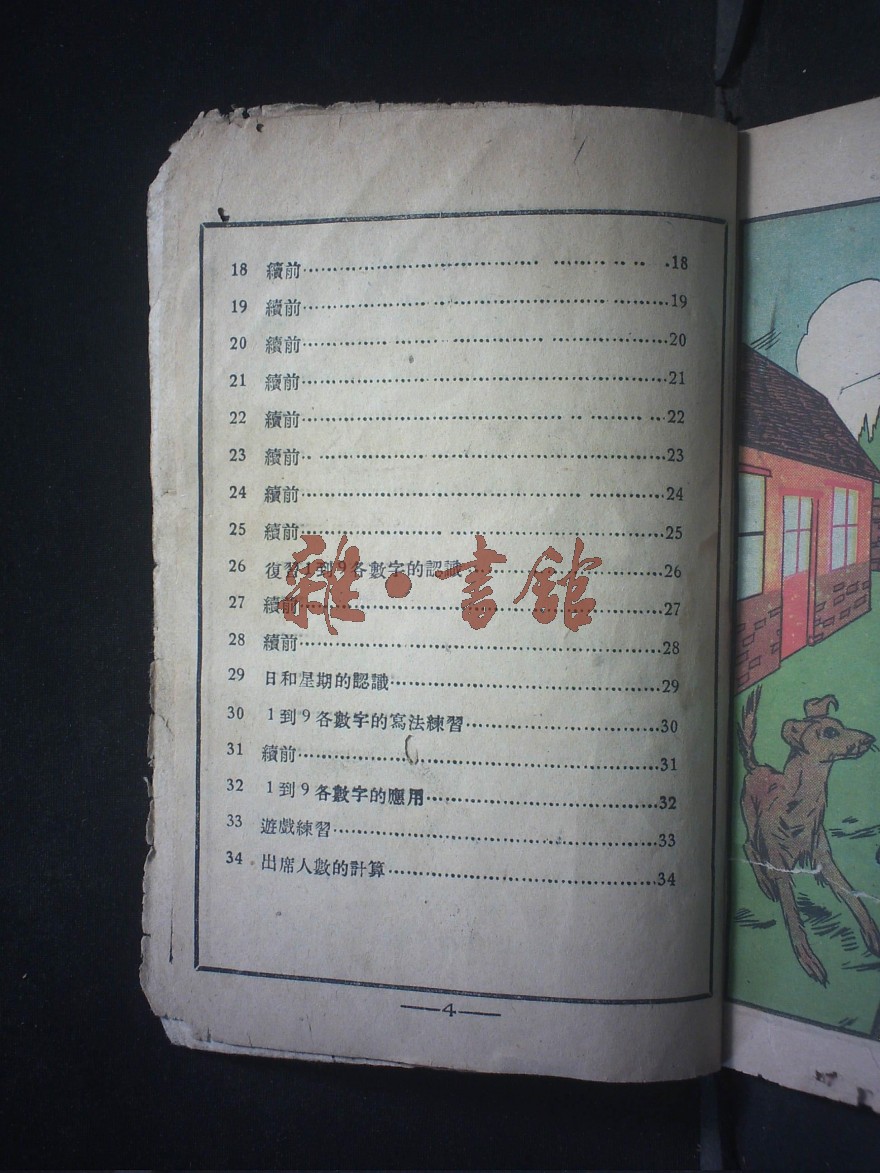 18 續前………………18
19 續前………………19
20 續前………………20
21 續前………………21
22 續前………………22
23 續前………………23
24 續前………………24
25 續前………………25
26 復習1到9各數字的認識………………26
27 續前………………27
28 續前………………28
29 日和星期的認識………………29
30 1到9各數字的寫法練習………………30
31 續前………………31
32 1到9各數字的應用………………32
33 遊戲練習………………33
34 出席人數的計算………………34
—4—
雜·書館